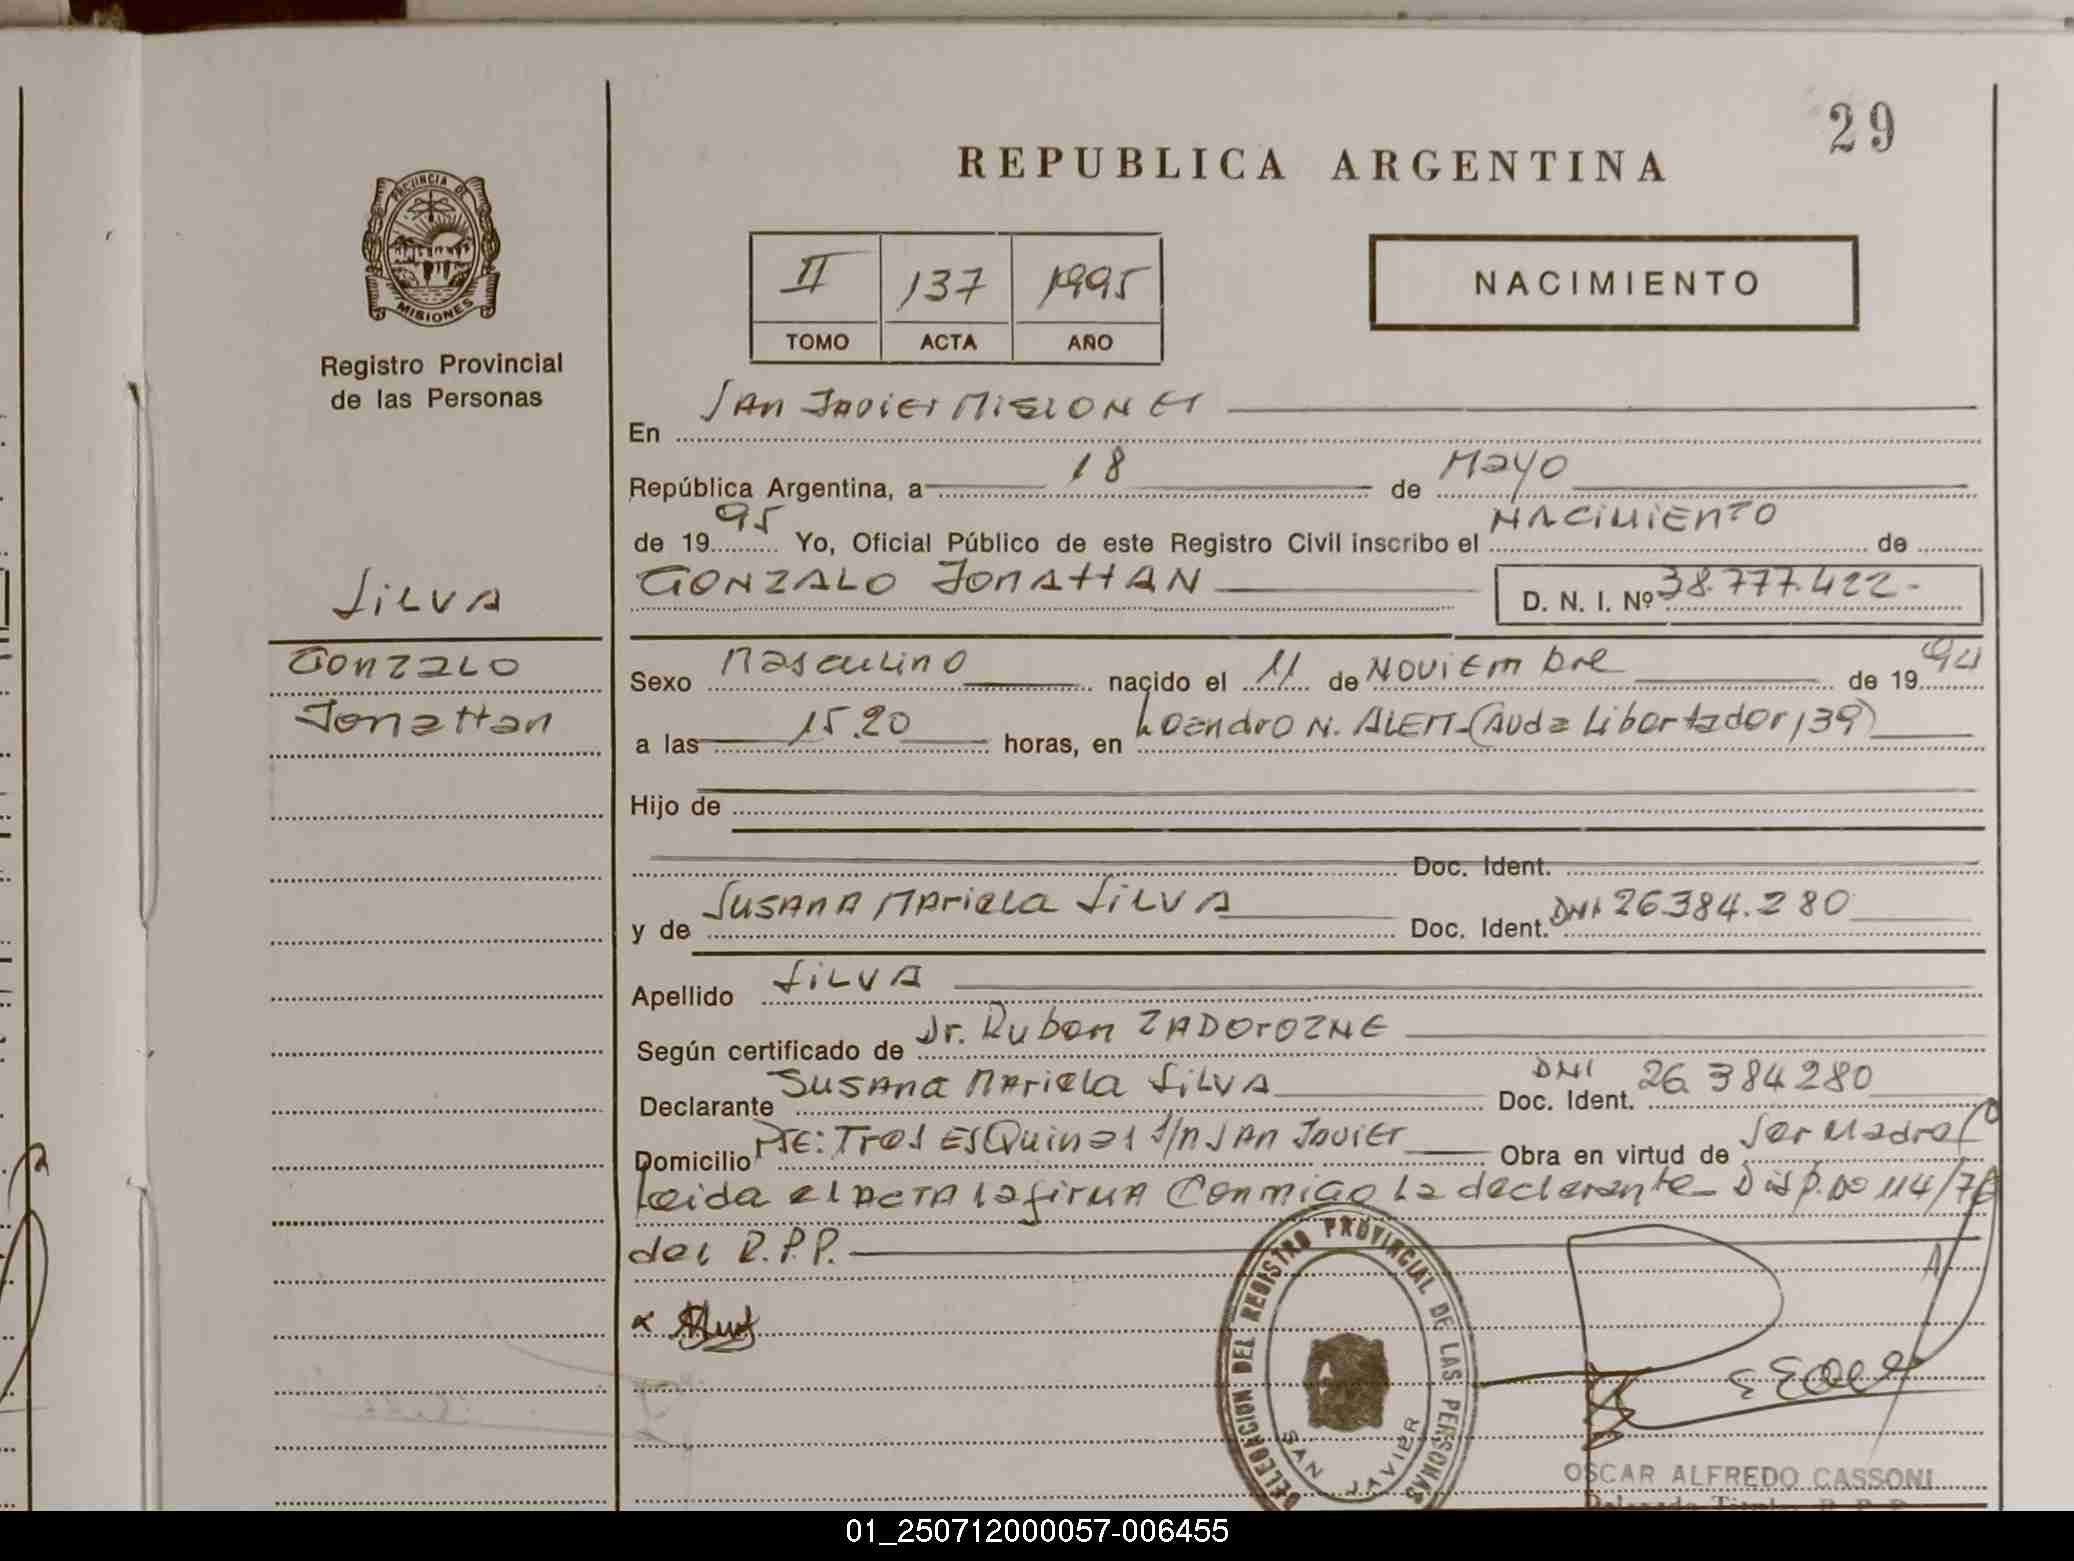 29
REPUBLICA ARGENTINA
PROVINCIA DE
MISIONES
Registro Provincial
de las Personas
II 137 1995
TOMO ACTA AÑO
NACIMIENTO
En San Javier Misiones
República Argentina, a 18 de Mayo
de 1995 Yo, Oficial Público de este Registro Civil inscribo el NACIMIENTO de
GONZALO JONATHAN D. N. I. Nº 38.777.422-
SILVA
Gonzalo
Jonathan
Sexo Masculino nacido el 11 de Noviembre de 1994
a las 15.20 horas, en Leandro N. ALEM-(Avda Libertador 139)
Hijo de
Doc. Ident.
y de SUSANA MARIELA SILVA Doc. Ident. DNI 26384.280
Apellido SILVA
Según certificado de Dr. Ruben ZADOROZNE
Declarante SUSANA MARIELA SILVA Doc. Ident. DNI 26 384280
Domicilio Tres Esquinas S/N San Javier Obra en virtud de Ser Madre
Leida el acta la firma Conmigo la declarante- Disp. 114/
del R.P.P.
DELEGACION DEL REGISTRO PROVINCIAL DE LAS PERSONAS
SAN JAVIER
OSCAR ALFREDO CASSONI
01_250712000057-006455